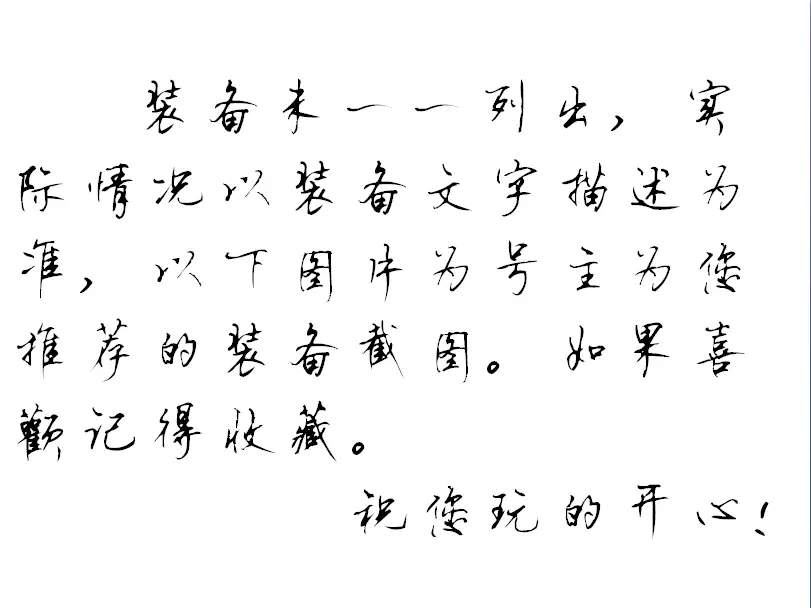 装备未一一列出，实
际情况以装备文字描述为
准，以下图片为号主为您
推荐的装备截图。如果喜
歡记得收藏。
祝您玩的开心！